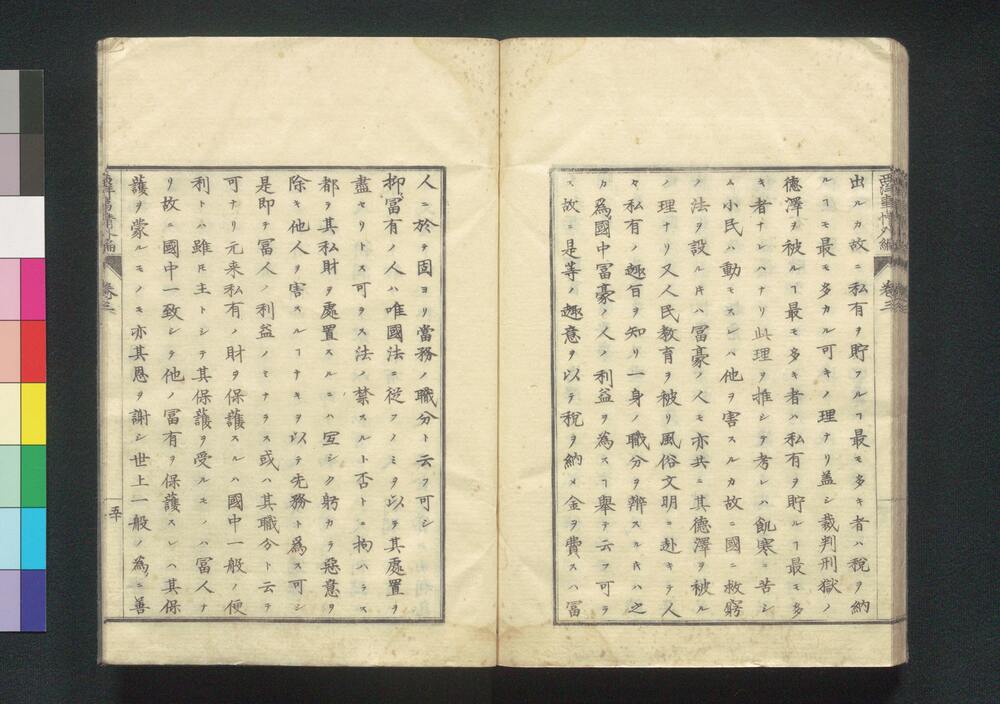 出ルカ故ニ私有ヲ貯フルヿ最モ多キ者ハ税ヲ納
ルヿモ最モ多カル可キノ理ナリ蓋シ裁判刑獄ノ
德澤ヲ被ルヿ最モ多キ者ハ私有ヲ貯ルヿ最モ多
キ者ナレハナリ此理ヲ推シテ考レハ飢寒ニ苦シ
ム小民ハ動モスレハ他ヲ害スルカ故ニ國ニ救窮
ノ法ヲ設ル𪜈ハ冨豪ノ人モ亦共ニ其德澤ヲ被ル
ノ理ナリ又人民教育ヲ被リ風俗文明ニ赴キテ人
々私有ノ趣旨ヲ知リ一身ノ職分ヲ辨スルキハ之
カ為國中冨豪ノ人ノ利益ヲ為スヿ舉テ云フ可ラ
ス故ニ是等ノ趣意ヲ以テ税ヲ納メ金ヲ費スハ冨
人ニ於テ固ヨリ當務ノ職分ト云フ可シ
抑冨有ノ人ハ唯國法ニ從フノミヲ以テ其處置ヲ
盡セリトス可ラス法ノ禁スルト否トニ拘ハラス
都テ其私財ヲ處置スルニハ宜シク躬カラ惡意ヲ
除キ他人ヲ害スルヿナキヲ以テ先務ト為ス可シ
是即チ冨人ノ利益ノミナラス或ハ其職分ト云テ
可ナリ元来私有ノ財ヲ保護スルハ國中一般ノ便
利トハ雖𪜈主トシテ其保護ヲ受ルモノハ冨人ナ
リ故ニ國中一致シテ他ノ冨有ヲ保護スレハ其保
護ヲ蒙ルモノモ亦其恩ヲ謝シ世上一般ノ為ニ善
卷三
五十